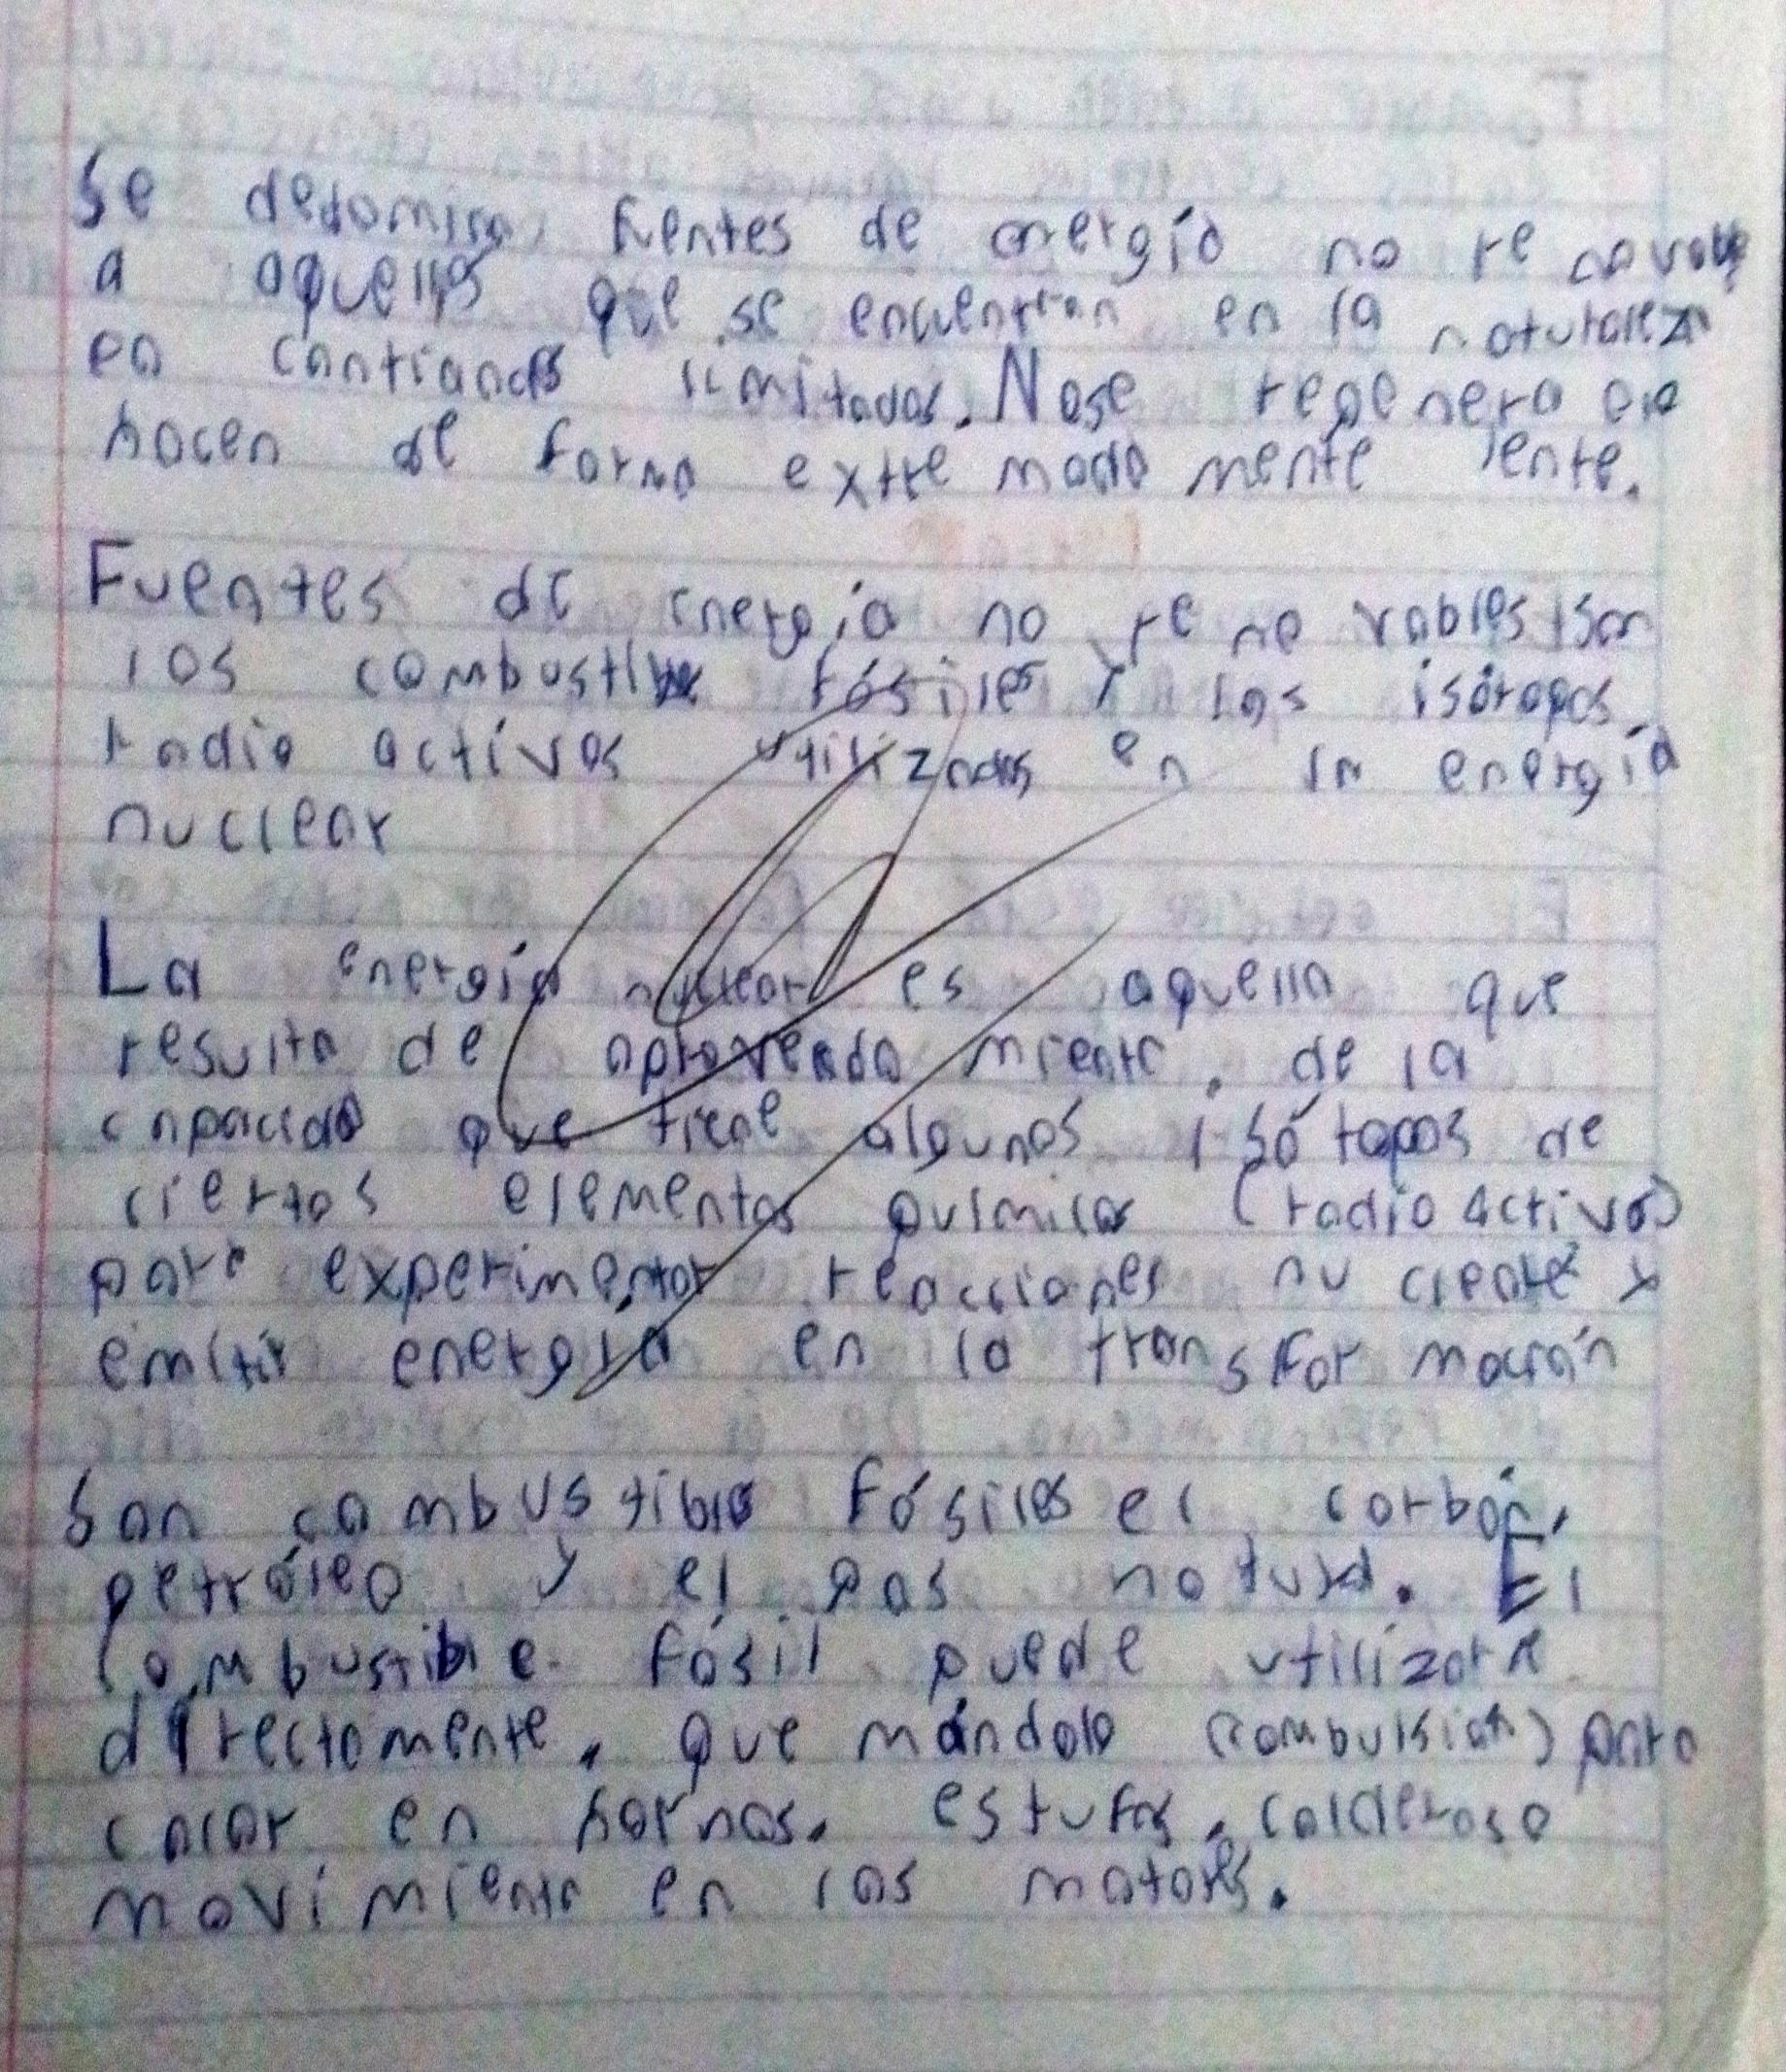 Se dedomina fuentes de energía no re novable
a aquellas que se encuentran en la naturaleza
en cantiandes limitadas. Nose regenera o lo
hacen de forma extre mada mente lente.
Fuentes de energía no re no vables son
los combustibles fósiles y los isótopos
radio activos utilizados en la energía
nuclear
La energía nuclear es aquella que
resulta de miento. de la
capacidad que tiene algunos isó topos de
ciertos elementos químicos (radio activos)
para experimentar reacciones nu cleare y
emitir energía en la trans for mación
Son combustibles fósiles el carbón,
petróleo y el gas natural. El
combustible fósil puede utilizarse
directamente, que mándolo (combulsión) para
calor en hornos, estufas, calderas o
movimiento en los motores.